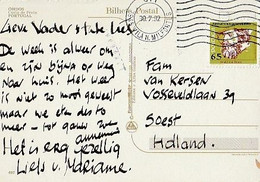 Bilhete Postal
PORTUGAL
30.7.92
65
Lieve Vader & tante Lies
De week is alweer om
en zijn bijna op weg
naar huis. Het weer
is niet zo mooi geweest
maar we eten des te
meer - tot gauw
Het is erg gezellig
Liefs v. Marianne.
Fam
van Kersen
Vosseveldlaan 39
Soest
Holland.